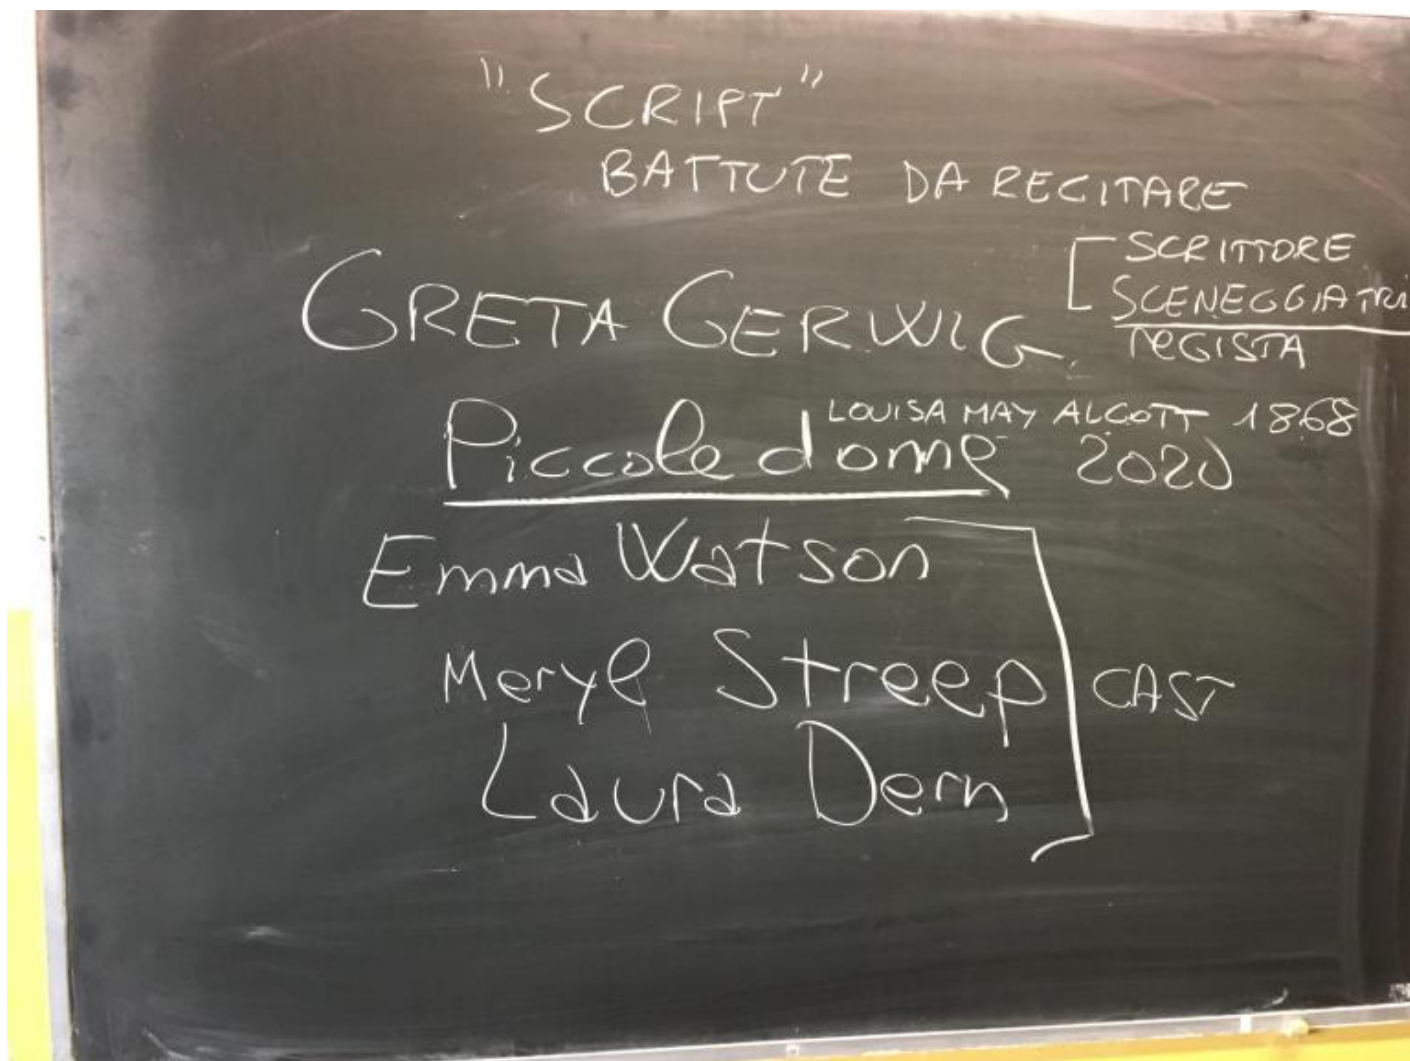 "SCRIPT"
BATTUTE DA RECITARE
GRETA GERWIG
SCRITTORE
SCENEGGIATRI
REGISTA
LOUISA MAY ALCOTT 1868
Piccole donne 2020
Emma Watson
Meryl Streep
Laura Dern
CAST